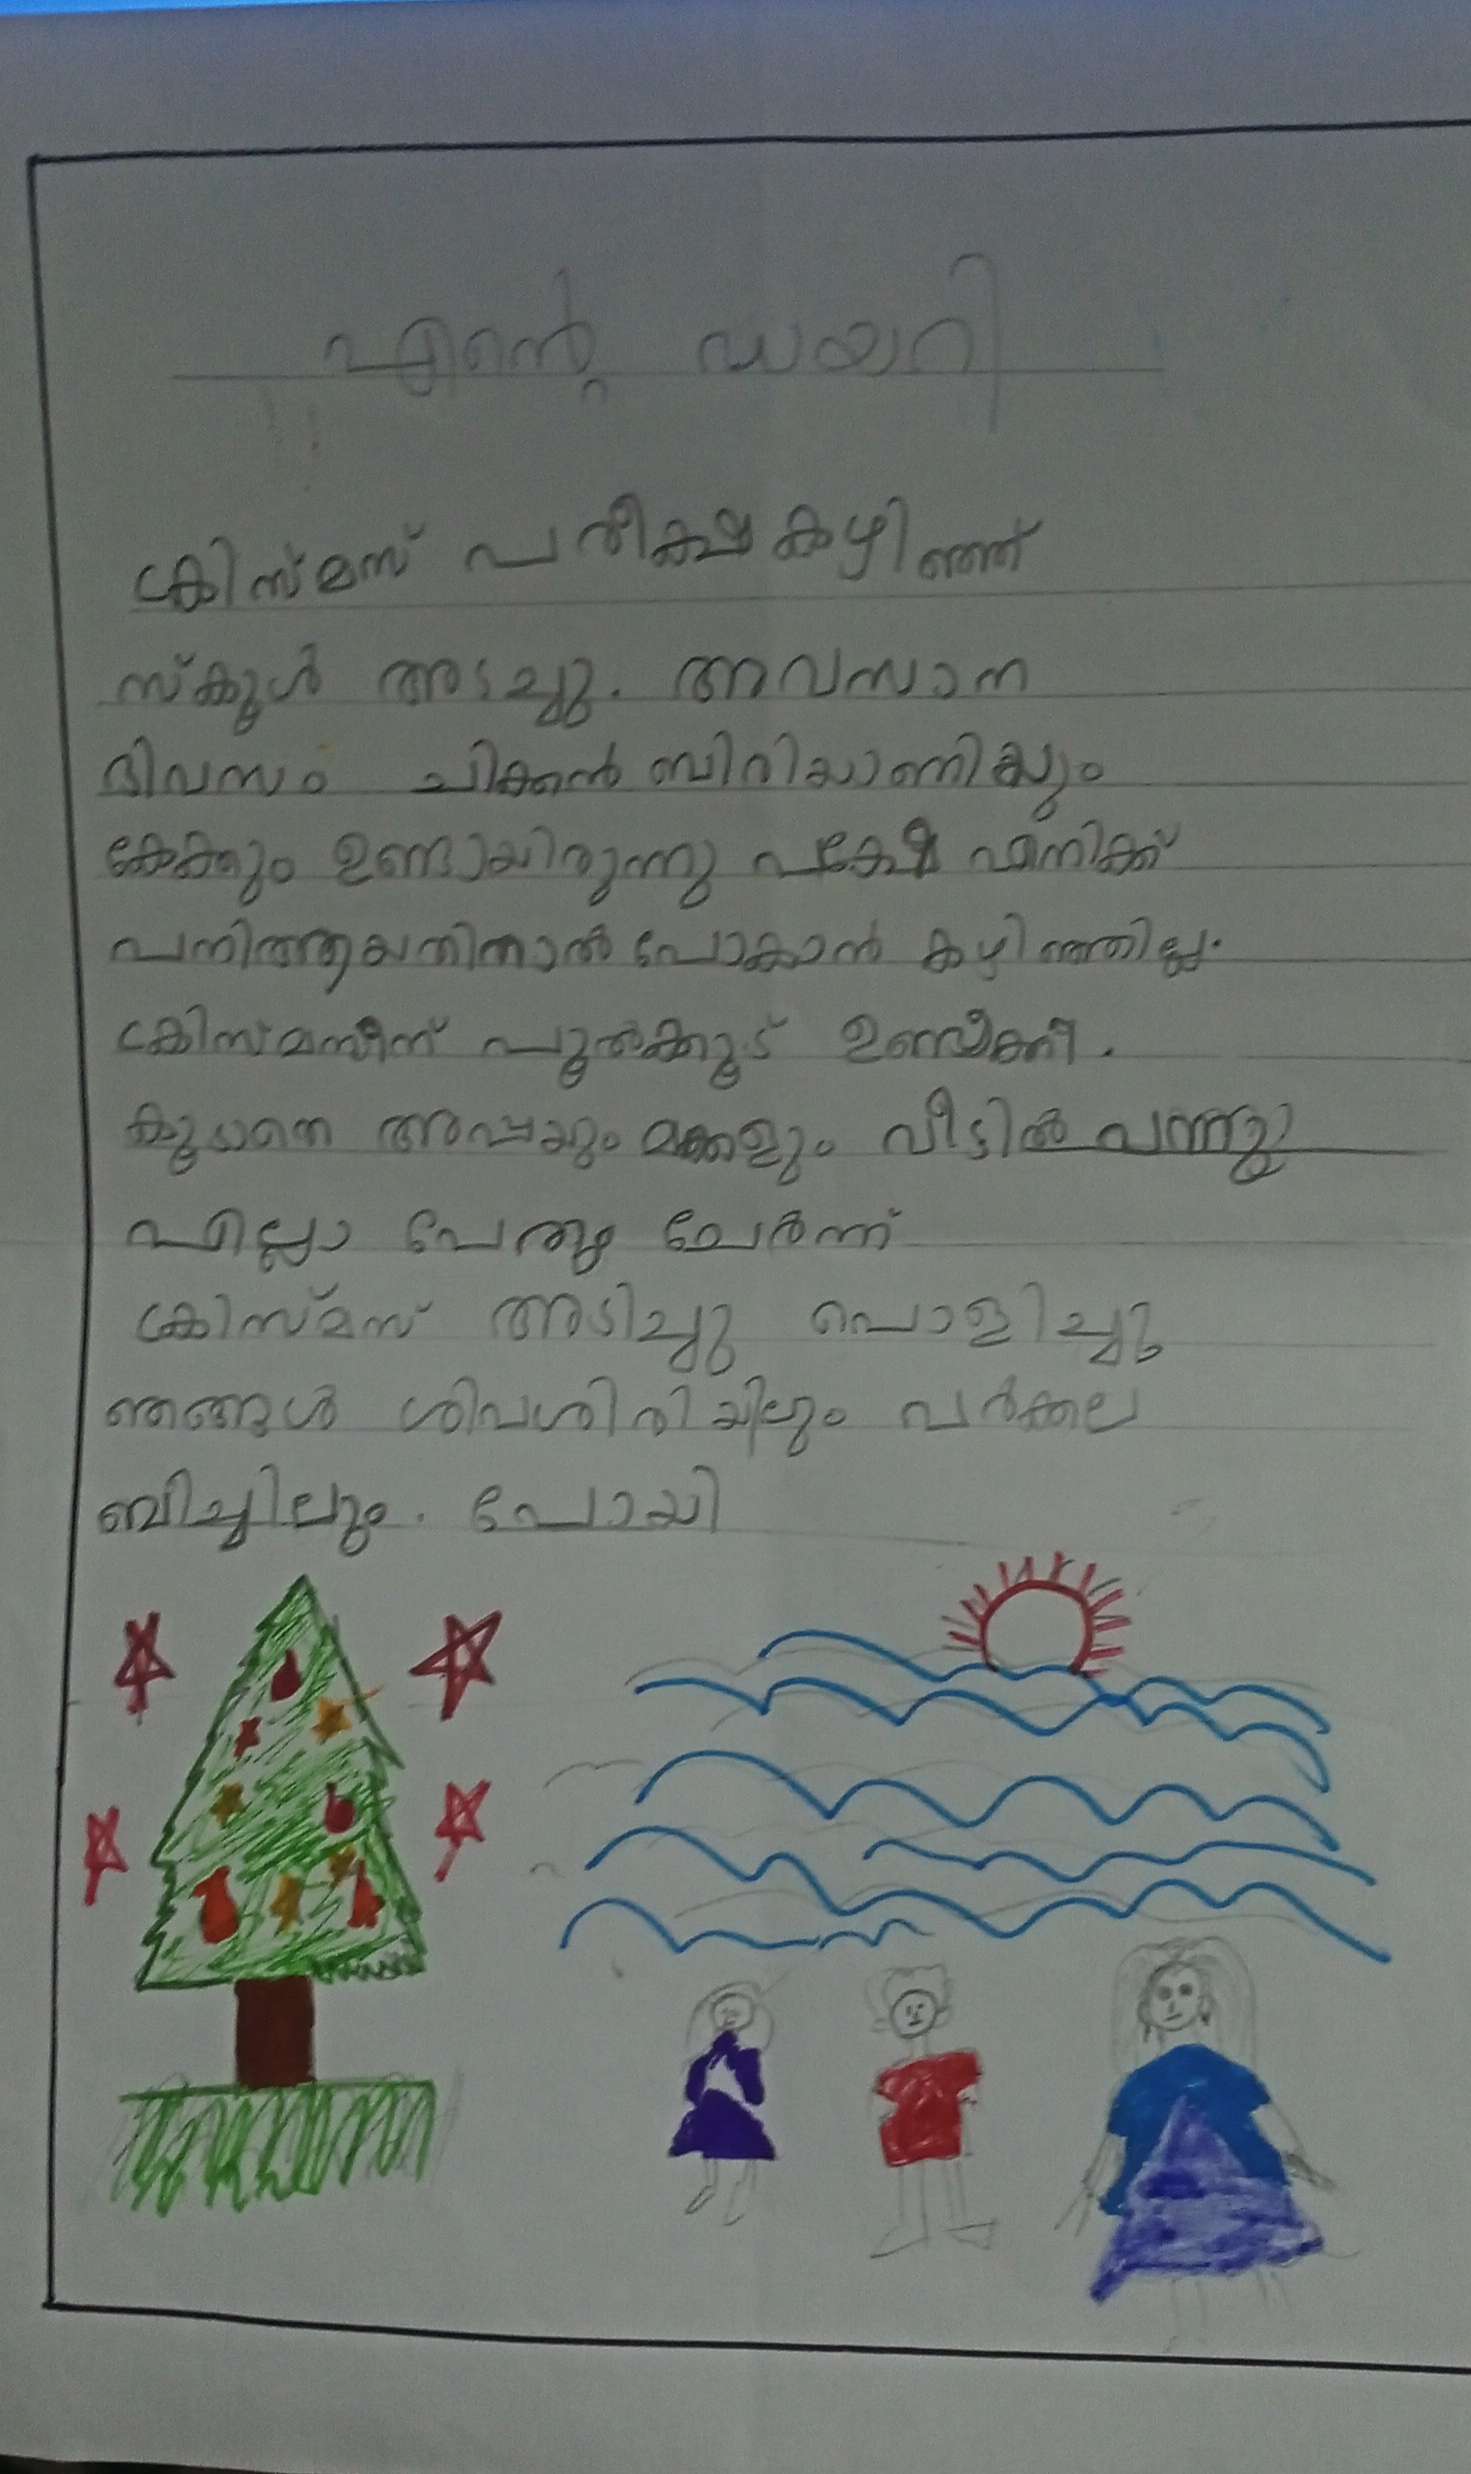 എന്റെ ഡയറി
ക്രിസ്മസ് പരീക്ഷ കഴിഞ്ഞ്
സ്കൂൾ അടച്ചു. അവസാന
ദിവസം ചിക്കൻ ബിരിയാണിയും
കേക്കും ഉണ്ടായിരുന്നു പക്ഷേ എനിക്ക്
പനിആയതിനാൽ പോകാൻ കഴിഞ്ഞില്ല.
ക്രിസ്മസിന് പുൽക്കൂട് ഉണ്ടാക്കി.
കൂടാതെ അപ്പയും മക്കളും വീട്ടിൽ വന്നു
എല്ലാ പേരും ചേർന്ന്
ക്രിസ്മസ് അടിച്ചു പൊളിച്ചു
ഞങ്ങൾ ശിവഗിരിയിലും വർക്കല
ബീച്ചിലും. പോയി